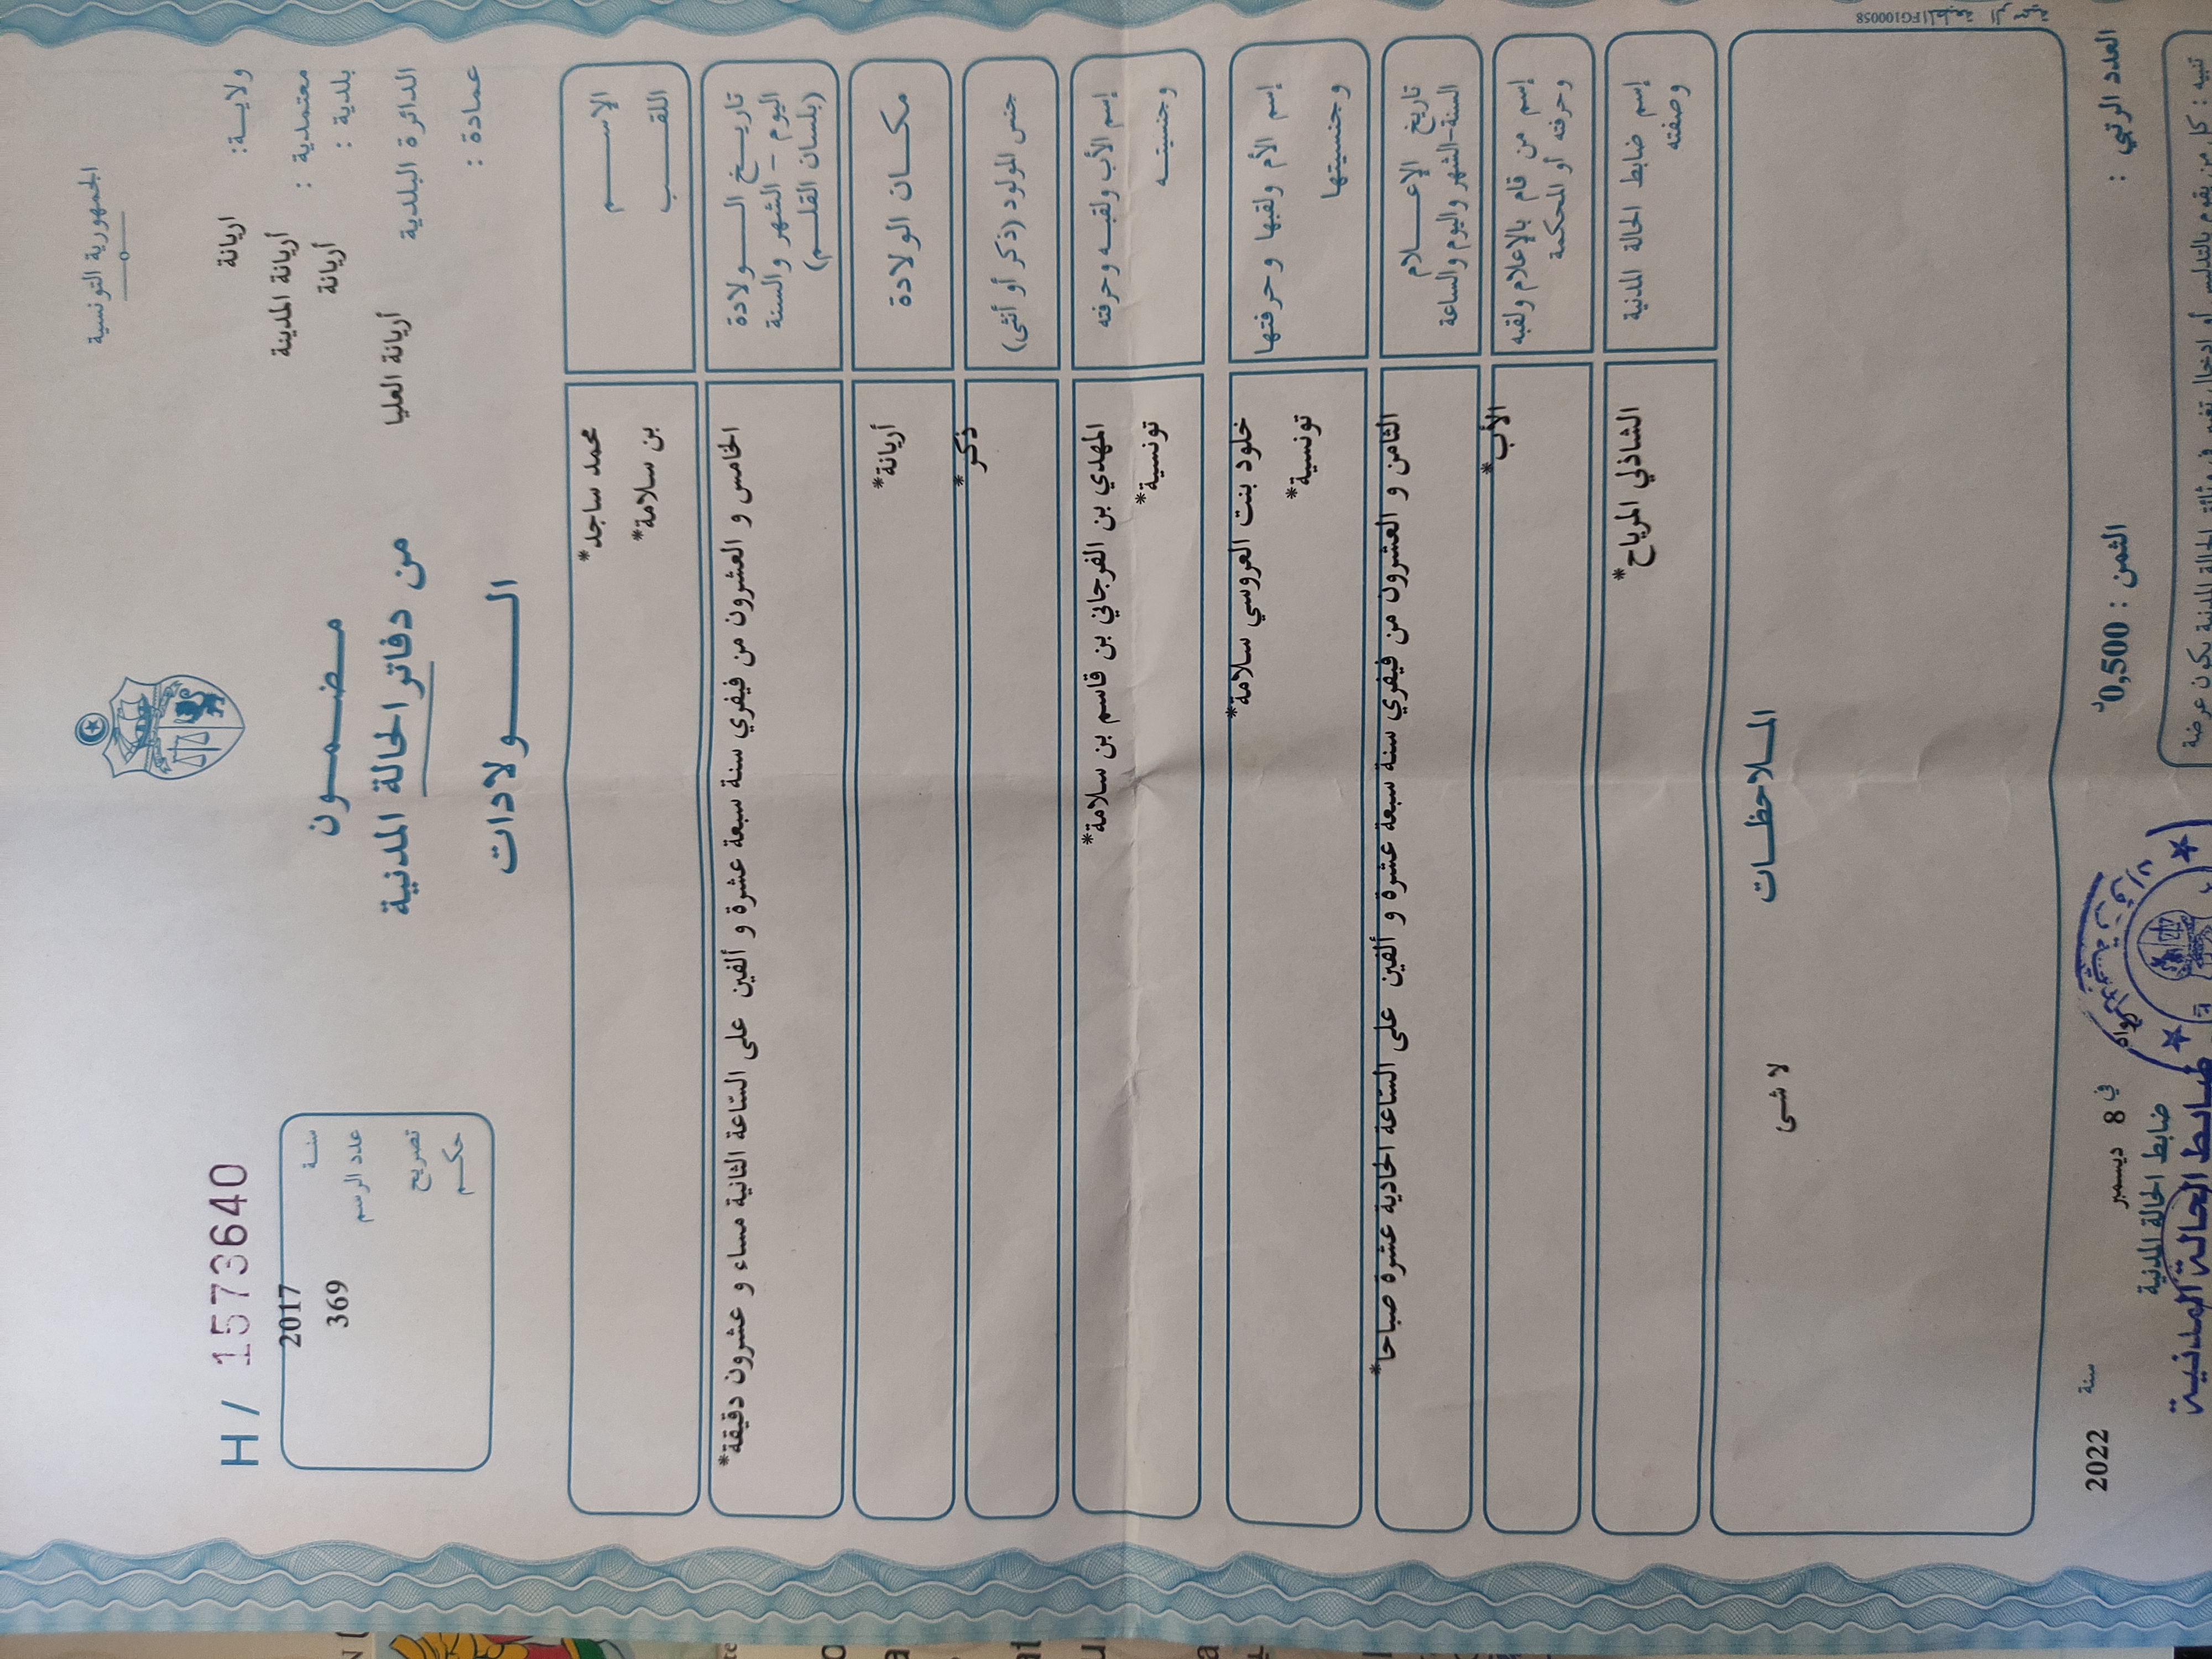 الجمهورية التونسية
ولايـة: اريانة
معتمدية : أريانة المدينة
بلدية : أريانة
الدائرة البلدية أريانة العليا
عمادة :
مـضـمـون
من دفاتر الحالة المدنية
الـولادات
H / 1573640
سنـة 2017
عدد الرسم 369
تصريح
حكـم
الإســـم محمد ساجد*
اللقـــب بن سلامة*
تاريـــخ الـــولادة
اليوم - الشهر والسنة
(بلسان القلـــم)
الخامس و العشرون من فيفري سنة سبعة عشرة و ألفين على السّاعة الثانية مساء و عشرون دقيقة*
مكـــان الولادة أريانة*
جنس المولود (ذكر أو أنثى) ذكر*
إسم الأب ولقبـه وحرفته المهدي بن الفرجاني بن قاسم بن سلامة*
وجنسيتـــه تونسية*
إسم الأم ولقبها وحرفتها خلود بنت العروسي سلامة*
وجنسيتها تونسية*
تاريخ الإعـــلام
السنة-الشهر واليوم والساعة
الثامن و العشرون من فيفري سنة سبعة عشرة و ألفين على السّاعة الحادية عشرة صباحا*
إسم من قام بالإعلام ولقبه الأب*
وحرفته أو المحكمة
إسم ضابط الحالة المدنية الشاذلي المرياح*
وصفته
المـلاحظـــات
لا شى
FG100058
العدد الرتبي :
الثمن : 0,500د
في 8 ديسمبر سنة 2022
ضابط الحالة المدنية
ضابط الحالة المدنية
تنبيه : كل من يقوم بالتدليس أو ادخال تغيير في وثائق الحالة المدنية يكون عرضة